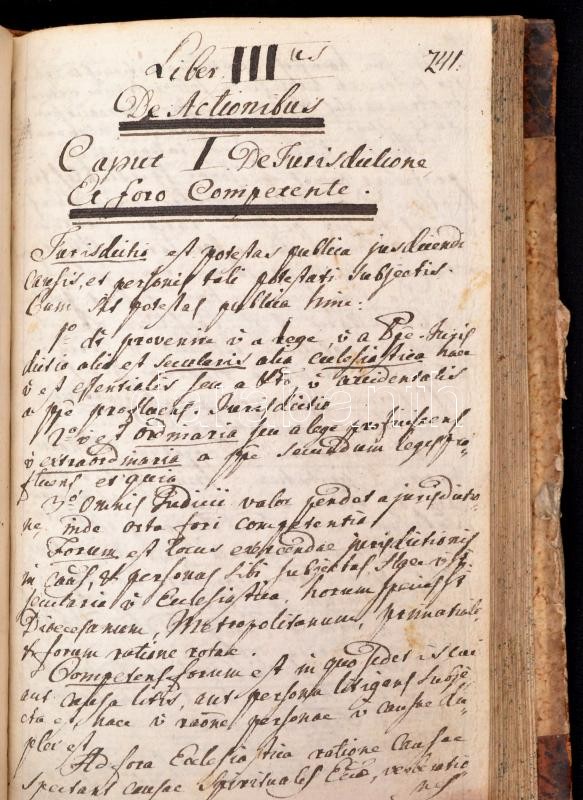 Liber IIIus 241.
De Actionibus
Caput I De Jurisdictione
Et foro Competente.
Jurisdictio est potestas publica jus dicendi
causis, et personis tali potestati subjectis.
Cum potestas publica
1o provenire v a lege, v a Ppe. Juris
dictio alia est secularis alia ecclesiastica haec
v est essentialis seu a v accidentalis
a ppe Jurisdictio
2o v est ordinaria seu a lege profluens
v extraordinaria a ppe secundum leges pro-
fluens et quia
3o Omnis Judicii valor pendet a jurisdictio-
ne, inde orta fori competentia
Forum est locus exercendae jurisdictionis
in et personas sibi subjectas
secularia v Ecclesiastica, horum
Dioecesanum, Metropolitanum, primatiale
et forum ratione rotae.
Competens forum est in quo sedet is cui
aut causa litis, aut persona litigans subje
cta est, haec v raone personae v causae du-
plex est
Ad fora Ecclesiastica ratione causae
spectant causae spirituales